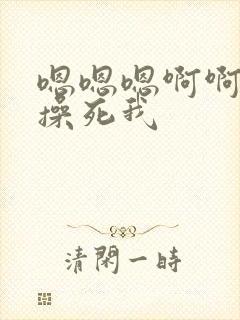 嗯嗯嗯啊啊
操死我
清閑一時